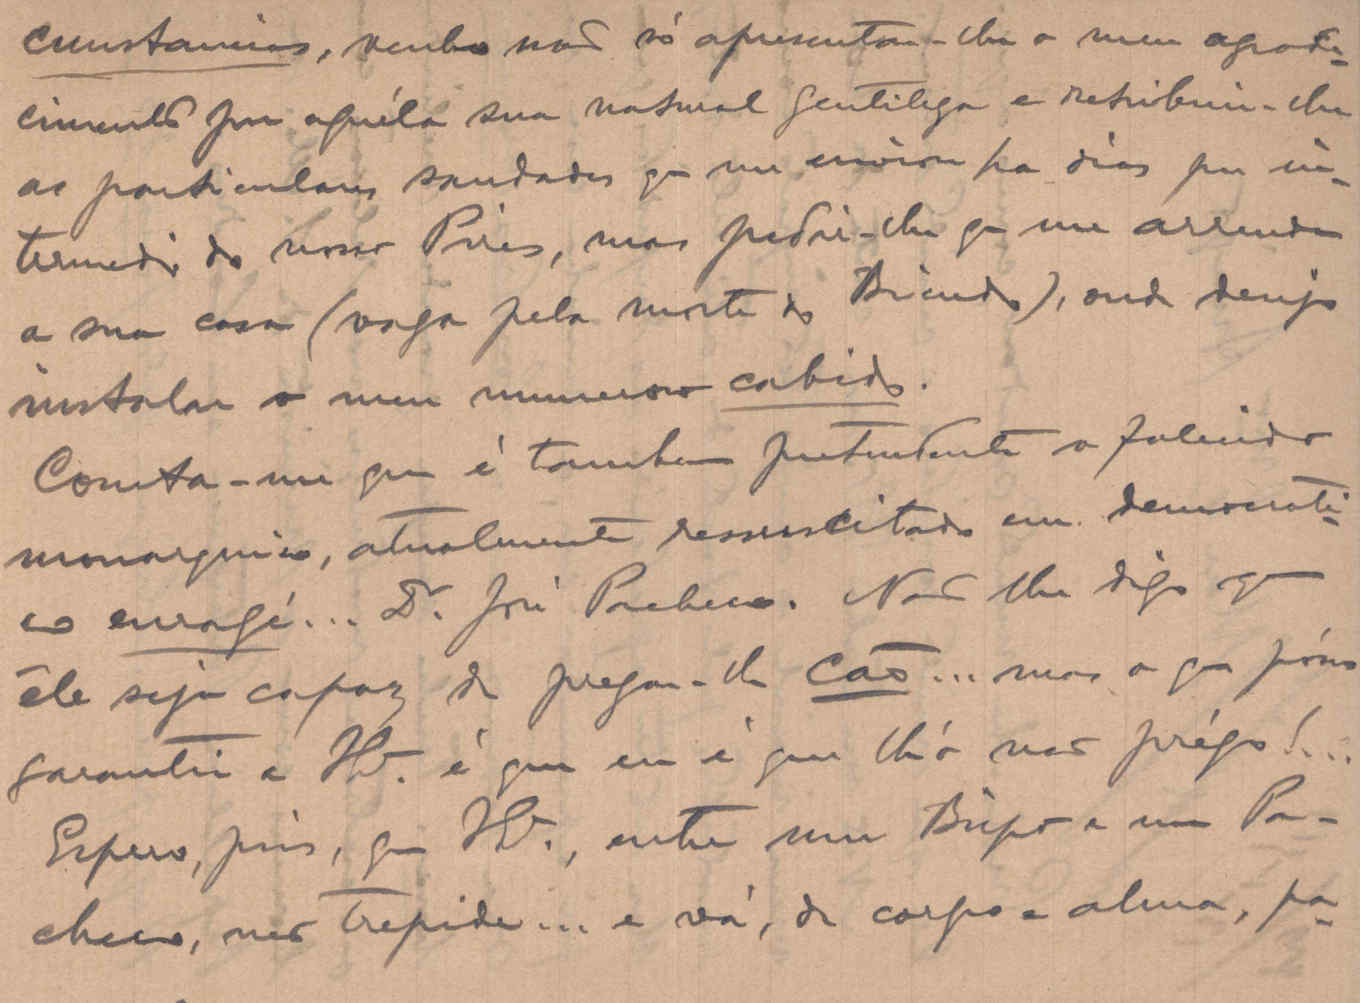 cunstancias, venho não só apresentar-lhe o meu agrade-
cimento por aquéla sua natural gentileza e retribuir-lhe
as particulares saudades qe me enviou ha dias por in-
termedio do nosso Pires, mas pedir-lhe qe me arrende
a sua casa (vaga pela morte do Bicudo), onde desejo
instalar o meu numeroso cabido.
Consta-me que é tambem pretendente o falecido
monarquico, atualmente ressuscitado em democrati-
co enragé... Dr. José Pacheco. Não lhe digo qe
êle seja capaz de pregar-lhe cão... mas o que pósso
garantir a V. é que eu é que lh'o não prégo!...
Espero, pois, que V., entre um Bispo e um Pa-
checo, não trepide... e vá, de corpo e alma, pa-